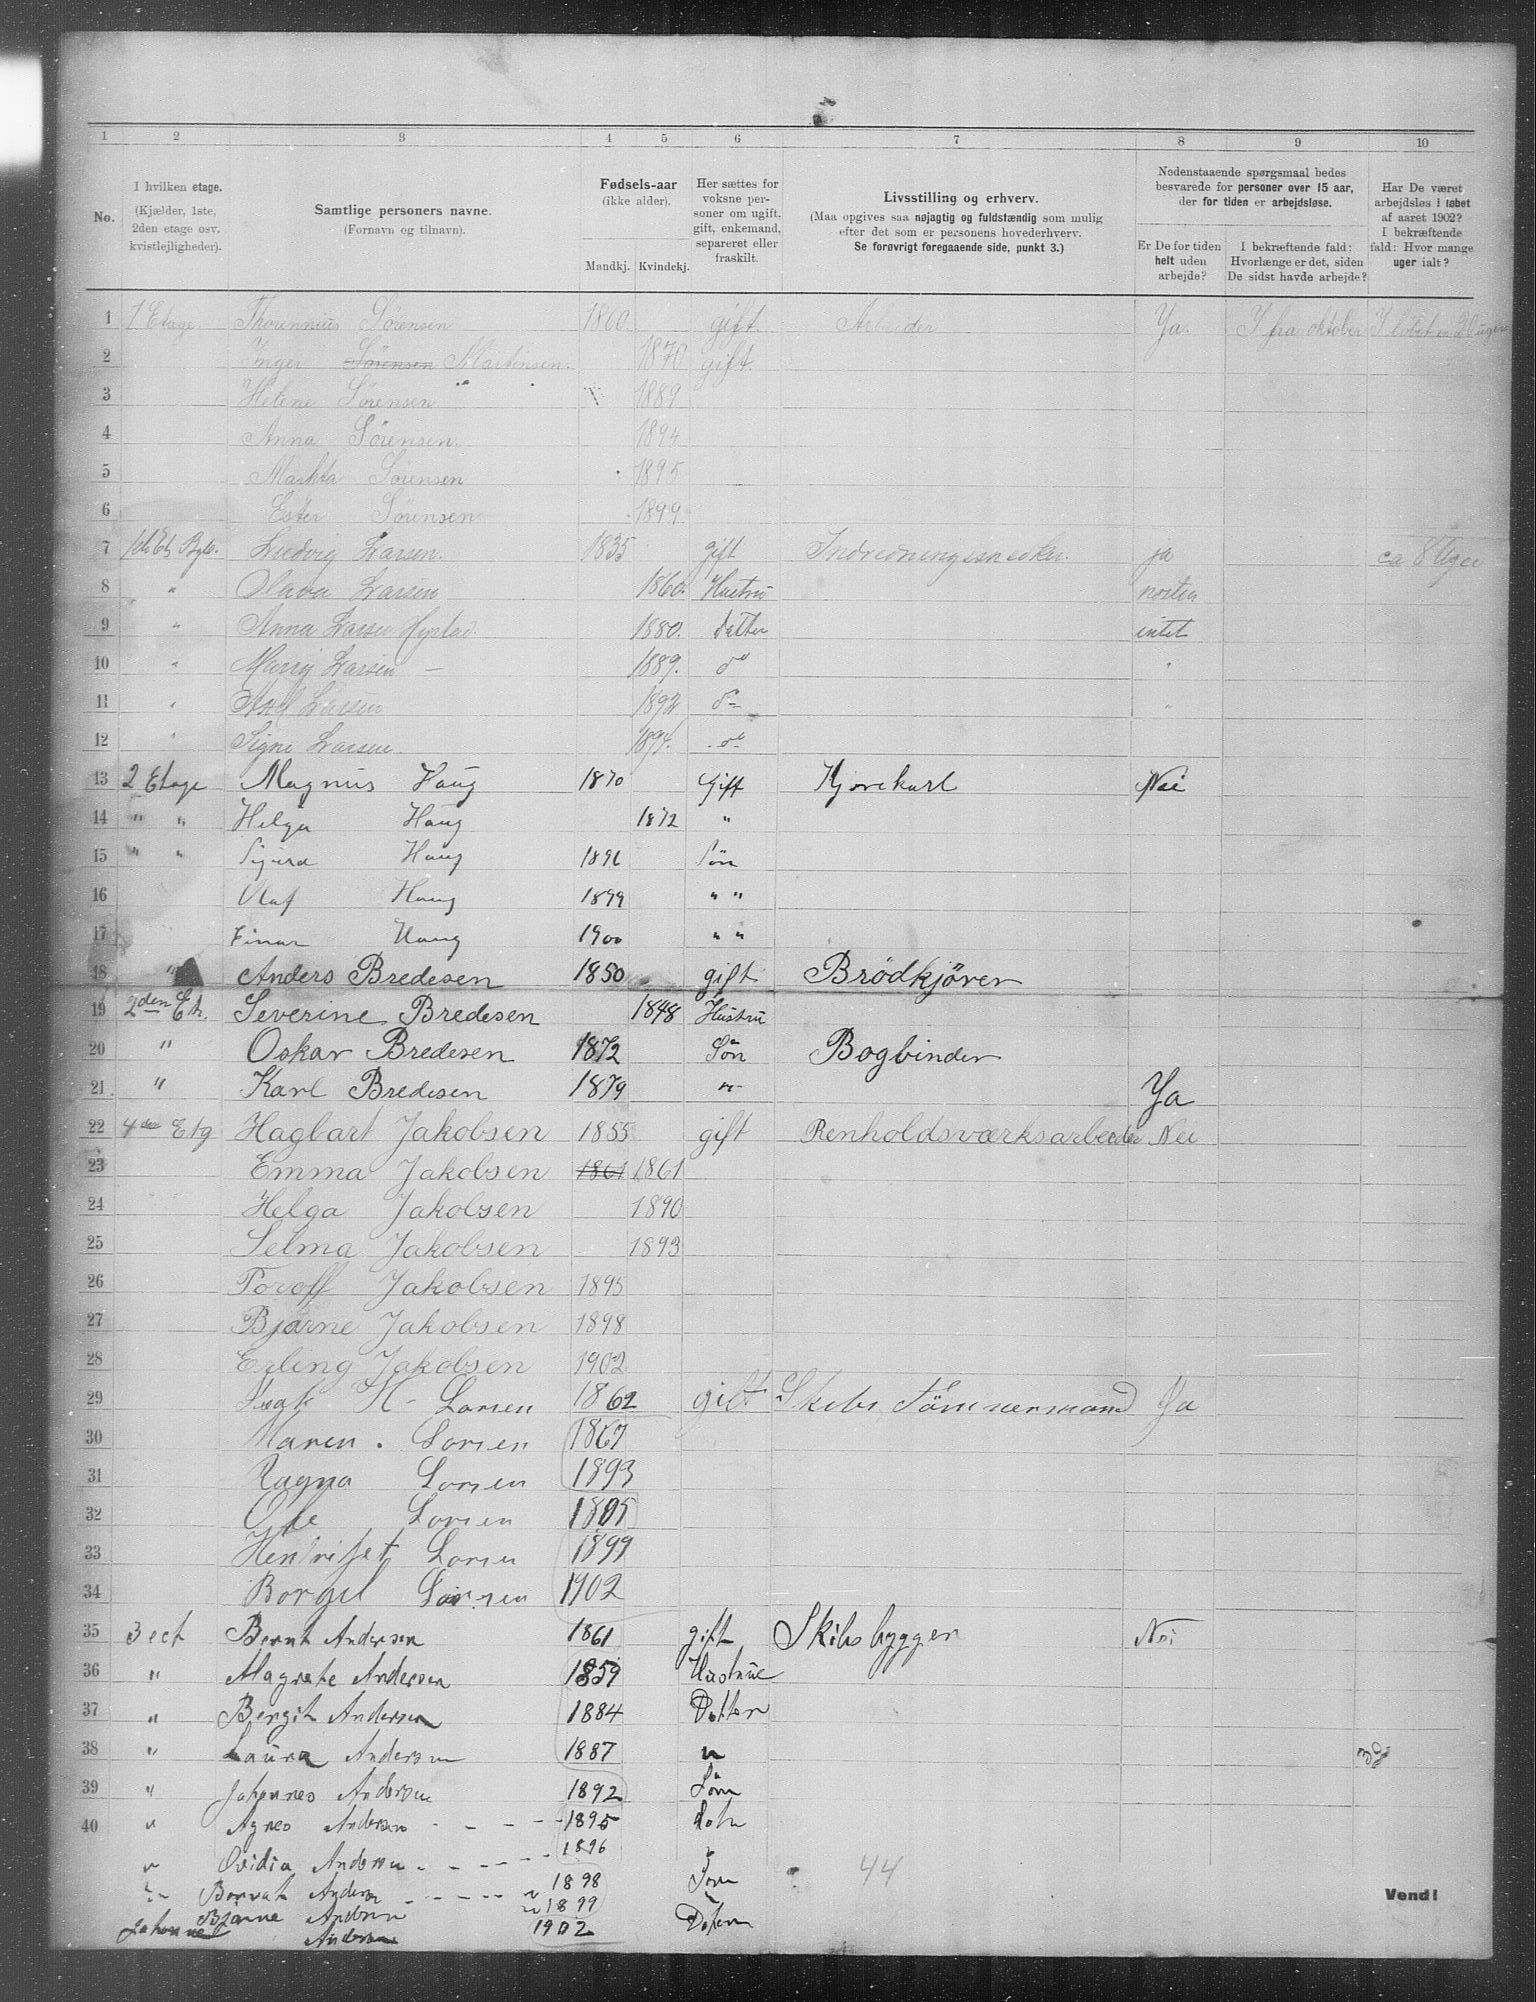 1 2 3 4 5 6 7 8 9 10
No.
I hvilken etage.
(Kjælder, 1ste,
2den etage osv.
kvistlejligheder).
Samtlige personers navne.
(Fornavn og tilnavn).
Fødsels-aar
(ikke alder).
Mandkj. Kvindekj.
Her sættes for
voksne per-
soner om ugift,
gift, enkemand,
separeret eller
fraskilt.
Livsstilling og erhverv.
(Maa opgives saa nøjagtig og fuldstændig som mulig
efter det som er personens hovederhverv.
Se forøvrigt foregaaende side, punkt 3.)
Nedenstaaende spørgsmaal bedes
besvarede for personer over 15 aar,
der for tiden er arbejdsløse.
Er De for tiden
helt uden
arbejde?
I bekræftende fald:
Hvorlænge er det, siden
De sidst havde arbejde?
Har De været
arbejdsløs i løbet
af aaret 1902?
I bekræftende
fald: Hvor mange
uger ialt?
1 1 Etage Sørensen 1860 gift Arbeider Ya. I fra oktober I løbet 20 uger
2 Inger Sørensen Martinsen. 1870 gift.
3 Helene Sørensen 1889
4 Anna Sørensen. 1894
5 Sørensen 1895
6 Ester Sørensen 1899
7 Ludvig Larsen. 1835 gift ja ca 8 Uger
8 " Larsen 1860. Hustru
9 " Anna Larsen 1880. datter intet
10 " Larsen — 1889. do "
11 " Larsen 1892 do "
12 " Signe Larsen 1894. do
13 2 Etage Magnus Haug 1870 Gift Kjørekarl Nei
14 " " Helga Haug 1872 "
15 " " Sigurd Haug Søn
16 Olaf Haug 1899 " "
17 Einar Haug 1900 " "
18 " Anders Bredesen 1850 gift Brödkjörer
19 2den Et. Severine Bredesen 1848 Hustru
20 " Oskar Bredesen 1872 Søn Bogbinder
21 " Karl Bredesen 1879 " Ya
22 4de Etg Hagbart Jakobsen 1855 gift Renholdsværksarbeider Nei
23 Emma Jakobsen 1861 1861
24 Helga Jakobsen 1890
25 Selma Jakobsen 1893
26 Jakobsen 1895
27 Bjarne Jakobsen 1898
28 Erling Jakobsen 1902
29 H Larsen 1862 gift Skibs Tömmermand Ja
30 Maren . Larsen 1867
31 Ragna Larsen 1893
32 Ole Larsen
33 Larsen 1899
34 Larsen 1902
35 3 ect Bernt Andersen 1861 gift Skibsbygger Nei
36 " Magrete Andersen 1859 Hustrue
37 " Bergit Andersen 1884 Datter
38 " Laura Andersen 1887 "
39 " Johannes Andersen 1892 Sön
40 " Agnes Andersen 1895
" Ovidia Andersen 1896 "
Andersen 1898 Sön
Bjarne Andersen 1899 "
Andersen 1902
44
Vend!